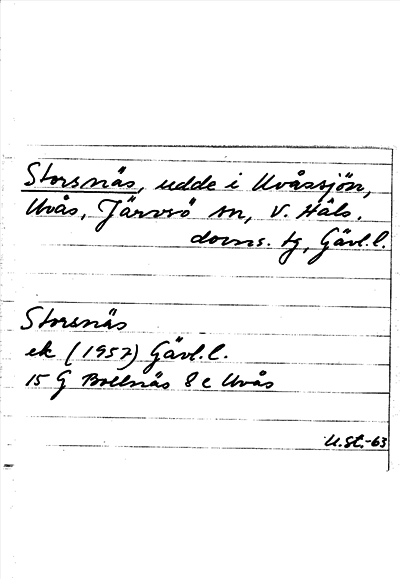 Storsnäs, udde i Uvåssjön,
Uvås, Järvsö sn, V. Häls.
doms. tg, Gävl.l.
Storsnäs
ek (1957) Gävl.l.
15 G Bollnäs 8 c Uvås
U.St.-63